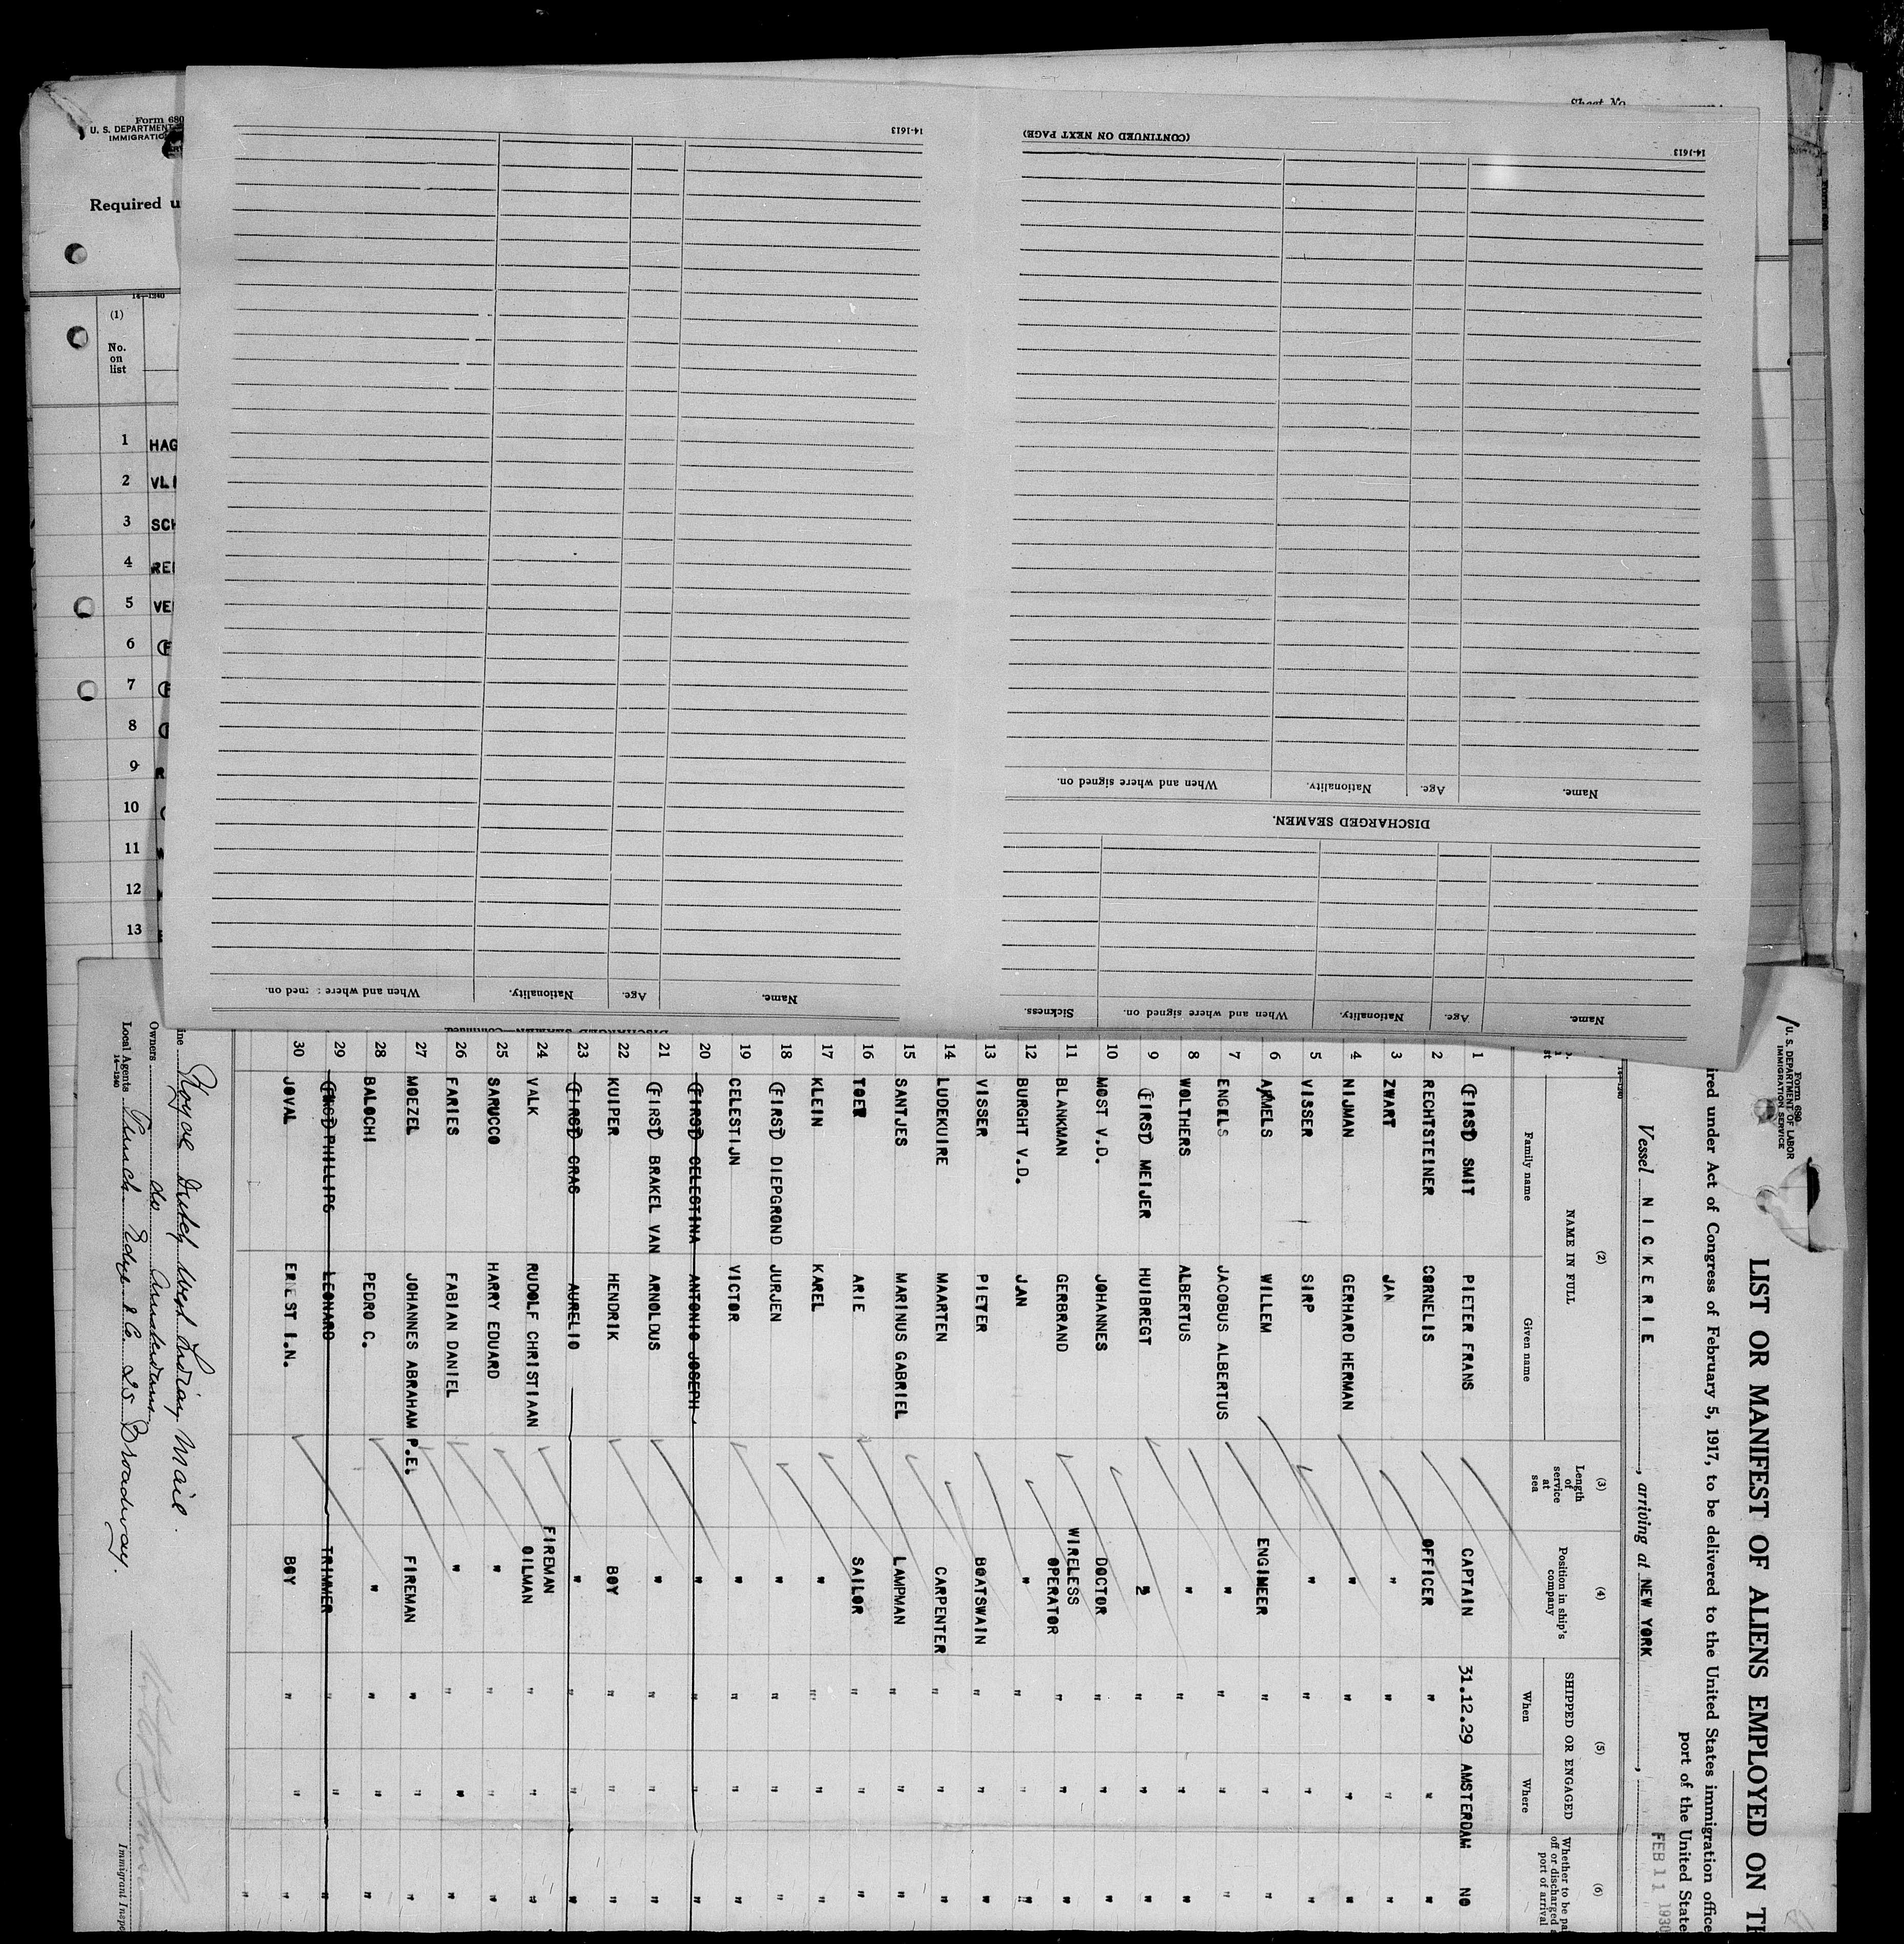 Sheet No.
Form 680
U. S. DEPARTMENT
IMMIGRATION
Required u
14-1240
(1)
No.
on
list
1 HAG
2 VLI
3 SCH
4 REI
5 VE
6
7
8
9
10
11
12
13
14-1613
When and where signed on.
Nationality.
Age.
Name.
DISCHARGED SEAMEN—Continued
(CONTINUED ON NEXT PAGE)
14-1613
Name.
Age.
Nationality.
When and where signed on.
DISCHARGED SEAMEN.
Name.
Age.
Nationality.
When and where signed on.
Sickness.
Form 680
U. S. DEPARTMENT OF LABOR
IMMIGRATION SERVICE
LIST OR MANIFEST OF ALIENS EMPLOYED ON TH
ired under Act of Congress of February 5, 1917, to be delivered to the United States immigration office
port of the United State
Vessel NICKERIE, arriving at NEW YORK, FEB 11 1930
14-1240
(2) (3) (4) (5) (6)
NAME IN FULL
Family name Given name
Length of service at sea
Position in ship's company
SHIPPED OR ENGAGED
When Where
Whether to be pa
off or discharged a
port of arrival
1 (FIRST) SMIT PIETER FRANS CAPTAIN 31.12.29 AMSTERDAM NO
2 RECHTSTEINER CORNELIS OFFICER " " "
3 ZWART JAN " " " "
4 NIJMAN GERHARD HERMAN " " " "
5 VISSER SIRP " " " "
6 ARMELS WILLEM ENGINEER " " "
7 ENGELS JACOBUS ALBERTUS " " " "
8 WOLTHERS ALBERTUS " " " "
9 (FIRST) MEIJER HUIBREGT " " " "
10 MOST V.D. JOHANNES DOCTOR " " "
11 BLANKMAN GERBRAND WIRELESS OPERATOR " " "
12 BURGHT V.D. JAN " " " "
13 VISSER PIETER BOATSWAIN " " "
14 LUDEKUIRE MAARTEN CARPENTER " " "
15 SANTJES MARINUS GABRIEL LAMPMAN " " "
16 TOER ARIE SAILOR " " "
17 KLEIN KAREL " " " "
18 (FIRST) DIEPGROND JURJEN " " " "
19 CELESTIJN VICTOR " " " "
20 (FIRST) CELESTINA ANTONIO JOSEPH " " " "
21 (FIRST) BRAKEL VAN ARNOLDUS " " " "
22 KUIPER HENDRIK BOY " " "
23 (FIRST) CRAS AURELIO " " " "
24 VALK RUDOLF CHRISTIAAN FIREMAN OILMAN " " "
25 SARUCCO HARRY EDUARD " " " "
26 FARIES FABIAN DANIEL " " " "
27 MOEZEL JOHANNES ABRAHAM P.E. FIREMAN " " "
28 BALOCHI PEDRO C. " " " "
29 PHILLIPS LEONARD TRIMMER " " "
30 JOVAL ERNEST I.N. BOY " " "
ine Royal Dutch West Indian Mail.
Owners do Amsterdam
Local Agents Funch Edye & Co. 25 Broadway.
14-1240
Immigrant Inspe